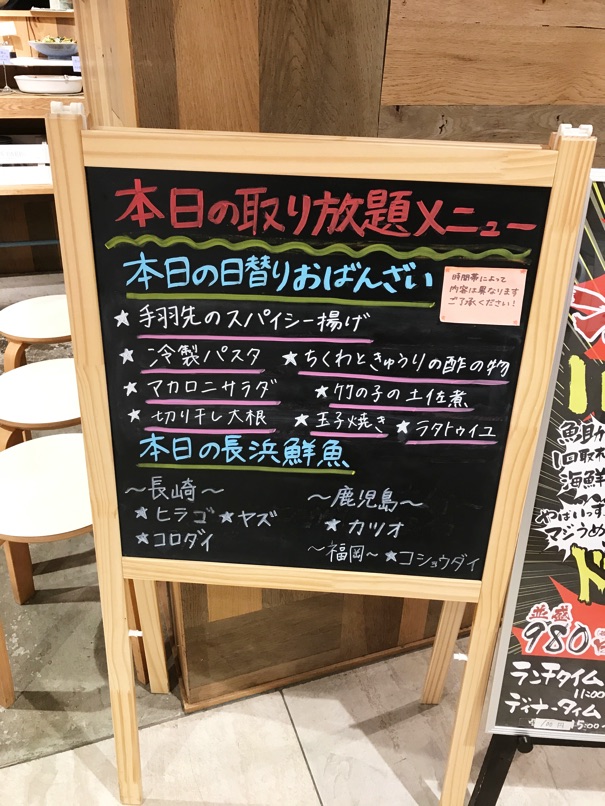 本日の取り放題メニュー
本日の日替りおばんざい
時間帯によって
内容は異なります
ご了承ください!
★手羽先のスパイシー揚げ
★冷製パスタ ★ちくわときゅうりの酢の物
★マカロニサラダ ★竹の子の土佐煮
★切り干し大根 ★玉子焼き ★ラタトゥイユ
本日の長浜鮮魚
～長崎～ ～鹿児島～
★ヒラゴ ★ヤズ ★カツオ
★コロダイ ～福岡～ ★コショウダイ
魚助
1回取
海鮮
やばいっす
マジうめ
並盛
980
ランチタイム
11:00
ディナータイム
15:00～